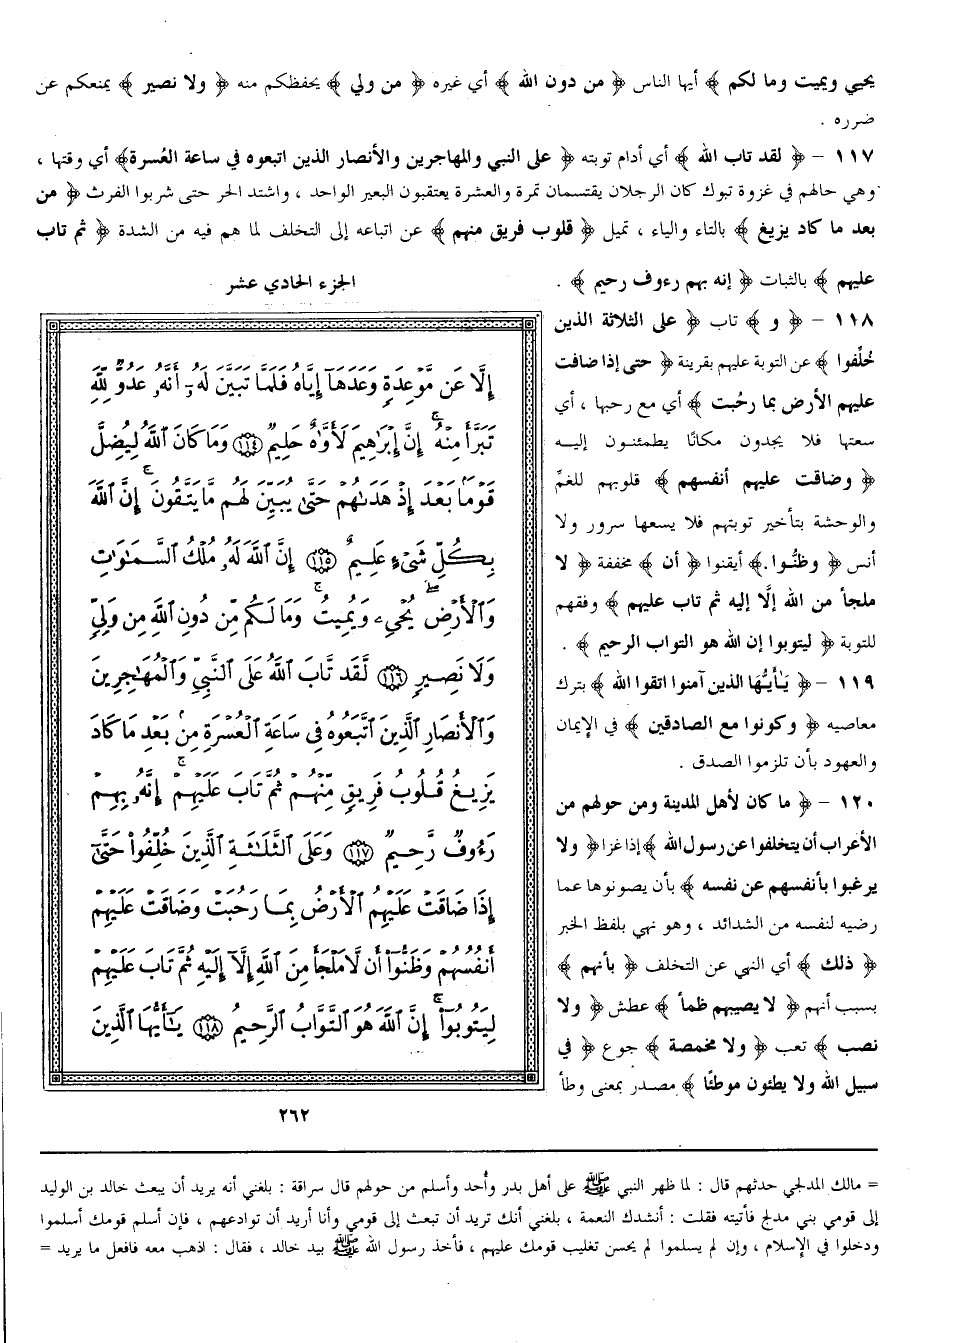 يحيي ويميت وما لكم ﴾ أيها الناس ﴿ من دون الله ﴾ أي غيره ﴿ من ولي ﴾ يحفظكم منه ﴿ ولا نصير ﴾ يمنعكم عن
ضرره .
١١٧ – ﴿ لقد تاب الله ﴾ أي أدام توبته ﴿ على النبي والمهاجرين والأنصار الذين اتبعوه في ساعة العُسرة﴾ أي وقتها ،
وهي حالهم في غزوة تبوك كان الرجلان يقتسمان تمرة والعشرة يعتقبون البعير الواحد ، واشتد الحر حتى شربوا الفرث ﴿ من
بعد ما كاد يزيغ ﴾ بالتاء والياء ، تميل ﴿ قلوب فريق منهم ﴾ عن اتباعه إلى التخلف لما هم فيه من الشدة ﴿ ثم تاب
عليهم ﴾ بالثبات ﴿ إنه بهم رءوف رحيم ﴾ .
١١٨ – ﴿ و ﴾ تاب ﴿ على الثلاثة الذين
خُلِّفوا ﴾ عن التوبة عليهم بقرينة ﴿ حتى إذا ضاقت
عليهم الأرض بما رحُبت ﴾ أي مع رحبها ، أي
سعتها فلا يجدون مكانًا يطمئنون إليه
﴿ وضاقت عليهم أنفسهم ﴾ قلوبهم للغمِّ
والوحشة بتأخير توبتهم فلا يسعها سرور ولا
أنس ﴿ وظنُّوا ﴾ أيقنوا ﴿ أن ﴾ مخففة ﴿ لا
ملجأ من الله إلَّا إليه ثم تاب عليهم ﴾ وفقهم
للتوبة ﴿ ليتوبوا إن الله هو التواب الرحيم ﴾ .
١١٩ – ﴿ يَـٰأَيُّها الذين آمنوا اتقوا الله ﴾ بترك
معاصيه ﴿ وكونوا مع الصادقين ﴾ في الإيمان
والعهود بأن تلزموا الصدق .
١٢٠ – ﴿ ما كان لأهل المدينة ومن حولهم من
الأعراب أن يتخلفوا عن رسول الله ﴾ إذا غزا ﴿ ولا
يرغبوا بأنفسهم عن نفسه ﴾ بأن يصونوها عما
رضيه لنفسه من الشدائد ، وهو نهي بلفظ الخبر
﴿ ذلك ﴾ أي النهي عن التخلف ﴿ بأنهم ﴾
بسبب أنهم ﴿ لا يصيبهم ظمأ ﴾ عطش ﴿ ولا
نصب ﴾ تعب ﴿ ولا مخمصة ﴾ جوع ﴿ في
سبيل الله ولا يطئون موطئًا ﴾ مصدر بمعنى وطأ
الجزء الحادي عشر
إِلَّا عَن مَّوْعِدَةٍ وَعَدَهَآ إِيَّاهُ فَلَمَّا تَبَيَّنَ لَهُۥٓ أَنَّهُۥ عَدُوٌّ لِّلَّهِ
تَبَرَّأَ مِنْهُ ۚ إِنَّ إِبْرَٰهِيمَ لَأَوَّٰهٌ حَلِيمٌ ﴿١١٤﴾ وَمَا كَانَ ٱللَّهُ لِيُضِلَّ
قَوْمًۢا بَعْدَ إِذْ هَدَىٰهُمْ حَتَّىٰ يُبَيِّنَ لَهُم مَّا يَتَّقُونَ ۚ إِنَّ ٱللَّهَ
بِكُلِّ شَىْءٍ عَلِيمٌ ﴿١١٥﴾ إِنَّ ٱللَّهَ لَهُۥ مُلْكُ ٱلسَّمَٰوَٰتِ
وَٱلْأَرْضِ ۖ يُحْىِۦ وَيُمِيتُ ۚ وَمَا لَكُم مِّن دُونِ ٱللَّهِ مِن وَلِىٍّ
وَلَا نَصِيرٍ ﴿١١٦﴾ لَّقَد تَّابَ ٱللَّهُ عَلَى ٱلنَّبِىِّ وَٱلْمُهَٰجِرِينَ
وَٱلْأَنصَارِ ٱلَّذِينَ ٱتَّبَعُوهُ فِى سَاعَةِ ٱلْعُسْرَةِ مِنۢ بَعْدِ مَا كَادَ
يَزِيغُ قُلُوبُ فَرِيقٍ مِّنْهُمْ ثُمَّ تَابَ عَلَيْهِمْ ۚ إِنَّهُۥ بِهِمْ
رَءُوفٌ رَّحِيمٌ ﴿١١٧﴾ وَعَلَى ٱلثَّلَٰثَةِ ٱلَّذِينَ خُلِّفُوا۟ حَتَّىٰٓ
إِذَا ضَاقَتْ عَلَيْهِمُ ٱلْأَرْضُ بِمَا رَحُبَتْ وَضَاقَتْ عَلَيْهِمْ
أَنفُسُهُمْ وَظَنُّوٓا۟ أَن لَّا مَلْجَأَ مِنَ ٱللَّهِ إِلَّآ إِلَيْهِ ثُمَّ تَابَ عَلَيْهِمْ
لِيَتُوبُوٓا۟ ۚ إِنَّ ٱللَّهَ هُوَ ٱلتَّوَّابُ ٱلرَّحِيمُ ﴿١١٨﴾ يَٰٓأَيُّهَا ٱلَّذِينَ
٢٦٢
= مالك المدلجي حدثهم قال : لما ظهر النبي ﷺ على أهل بدر وأُحد وأسلم من حولهم قال سراقة : بلغني أنه يريد أن يبعث خالد بن الوليد
إلى قومي بني مدلج فأتيته فقلت : أنشدك النعمة ، بلغني أنك تريد أن تبعث إلى قومي وأنا أريد أن توادعهم ، فإن أسلم قومك أسلموا
ودخلوا في الإسلام ، وإن لم يسلموا لم يحسن تغليب قومك عليهم ، فأخذ رسول الله ﷺ بيد خالد ، فقال : اذهب معه فافعل ما يريد =